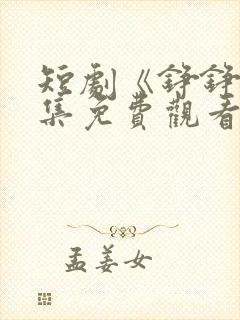 短劇《錚錚
集免費觀看
孟姜女